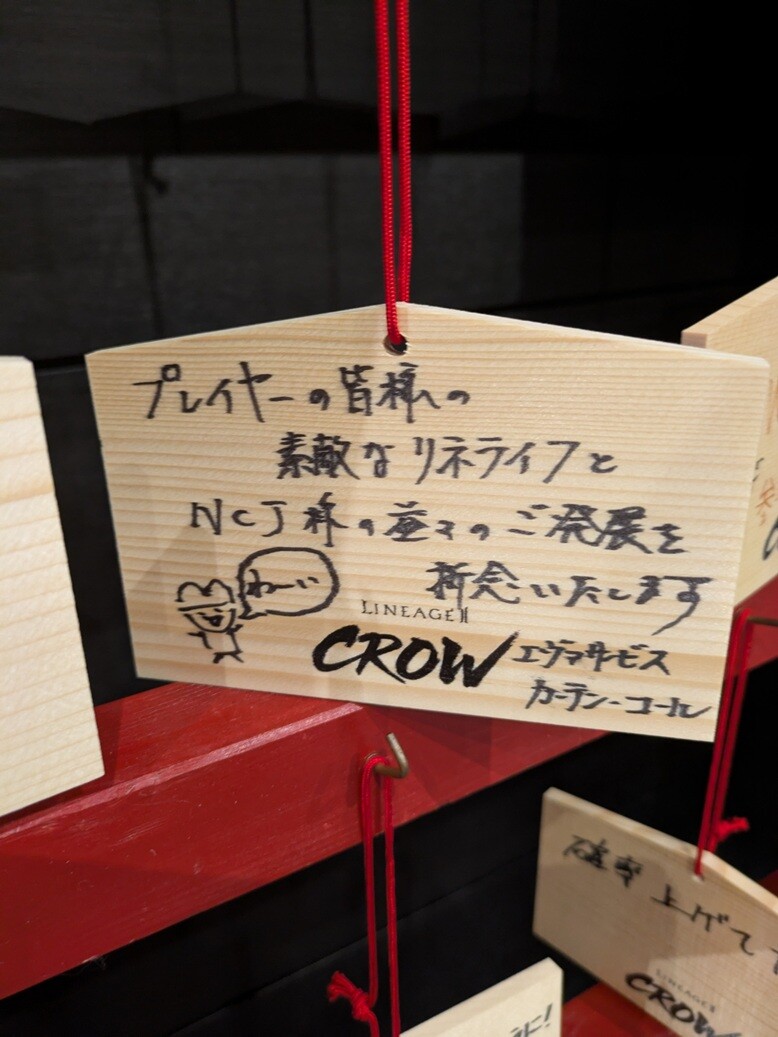 プレイヤーの皆様への
素敵なリネライフと
NCJ様の益々のご発展を
祈念いたします
わーい
LINEAGE II
CROW
エヴァサービス
カーテン・コール
確率上げて
LINEAGE II
CROW
に!